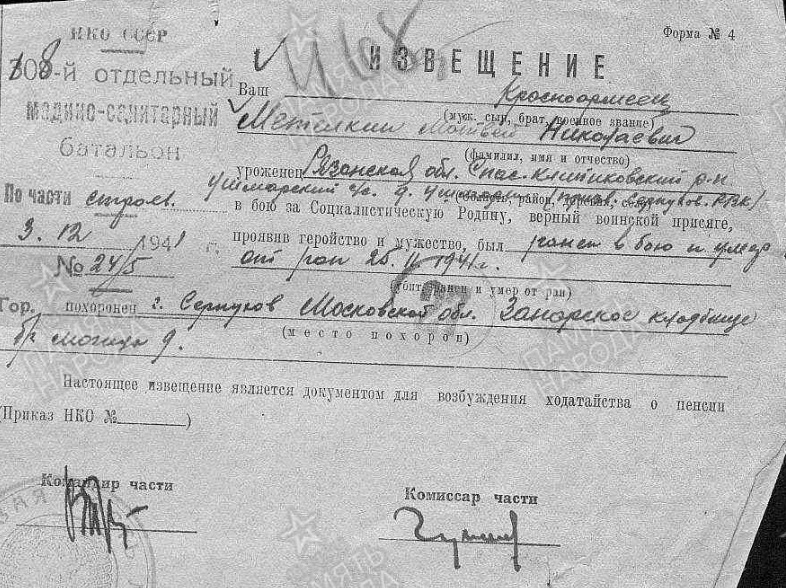 НКО СССР
Форма № 4
-й отдельный
медико-санитарный
батальон
ИЗВЕЩЕНИЕ
Ваш Красноармеец
(муж, сын, брат, военное звание)
Метелкин Матвей Николаевич
(фамилия, имя и отчество)
уроженец Рязанская обл. Спас. Клепиковский р-н
с/с. д. (призв. Серпухов. РВК)
По части строев.
в бою за Социалистическую Родину, верный воинской присяге,
3. 12 1941 г.
проявив геройство и мужество, был ранен в бою и умер
№ 24/5
от ран 25. 11 1941 г.
(убит, ранен и умер от ран)
Гор. похоронен г. Серпухов Московской обл. Занарское кладбище
(место похорон)
бр могила 9.
Настоящее извещение является документом для возбуждения ходатайства о пенсии
(Приказ НКО № )
Командир части
Комиссар части
ПАМЯТЬ НАРОДА